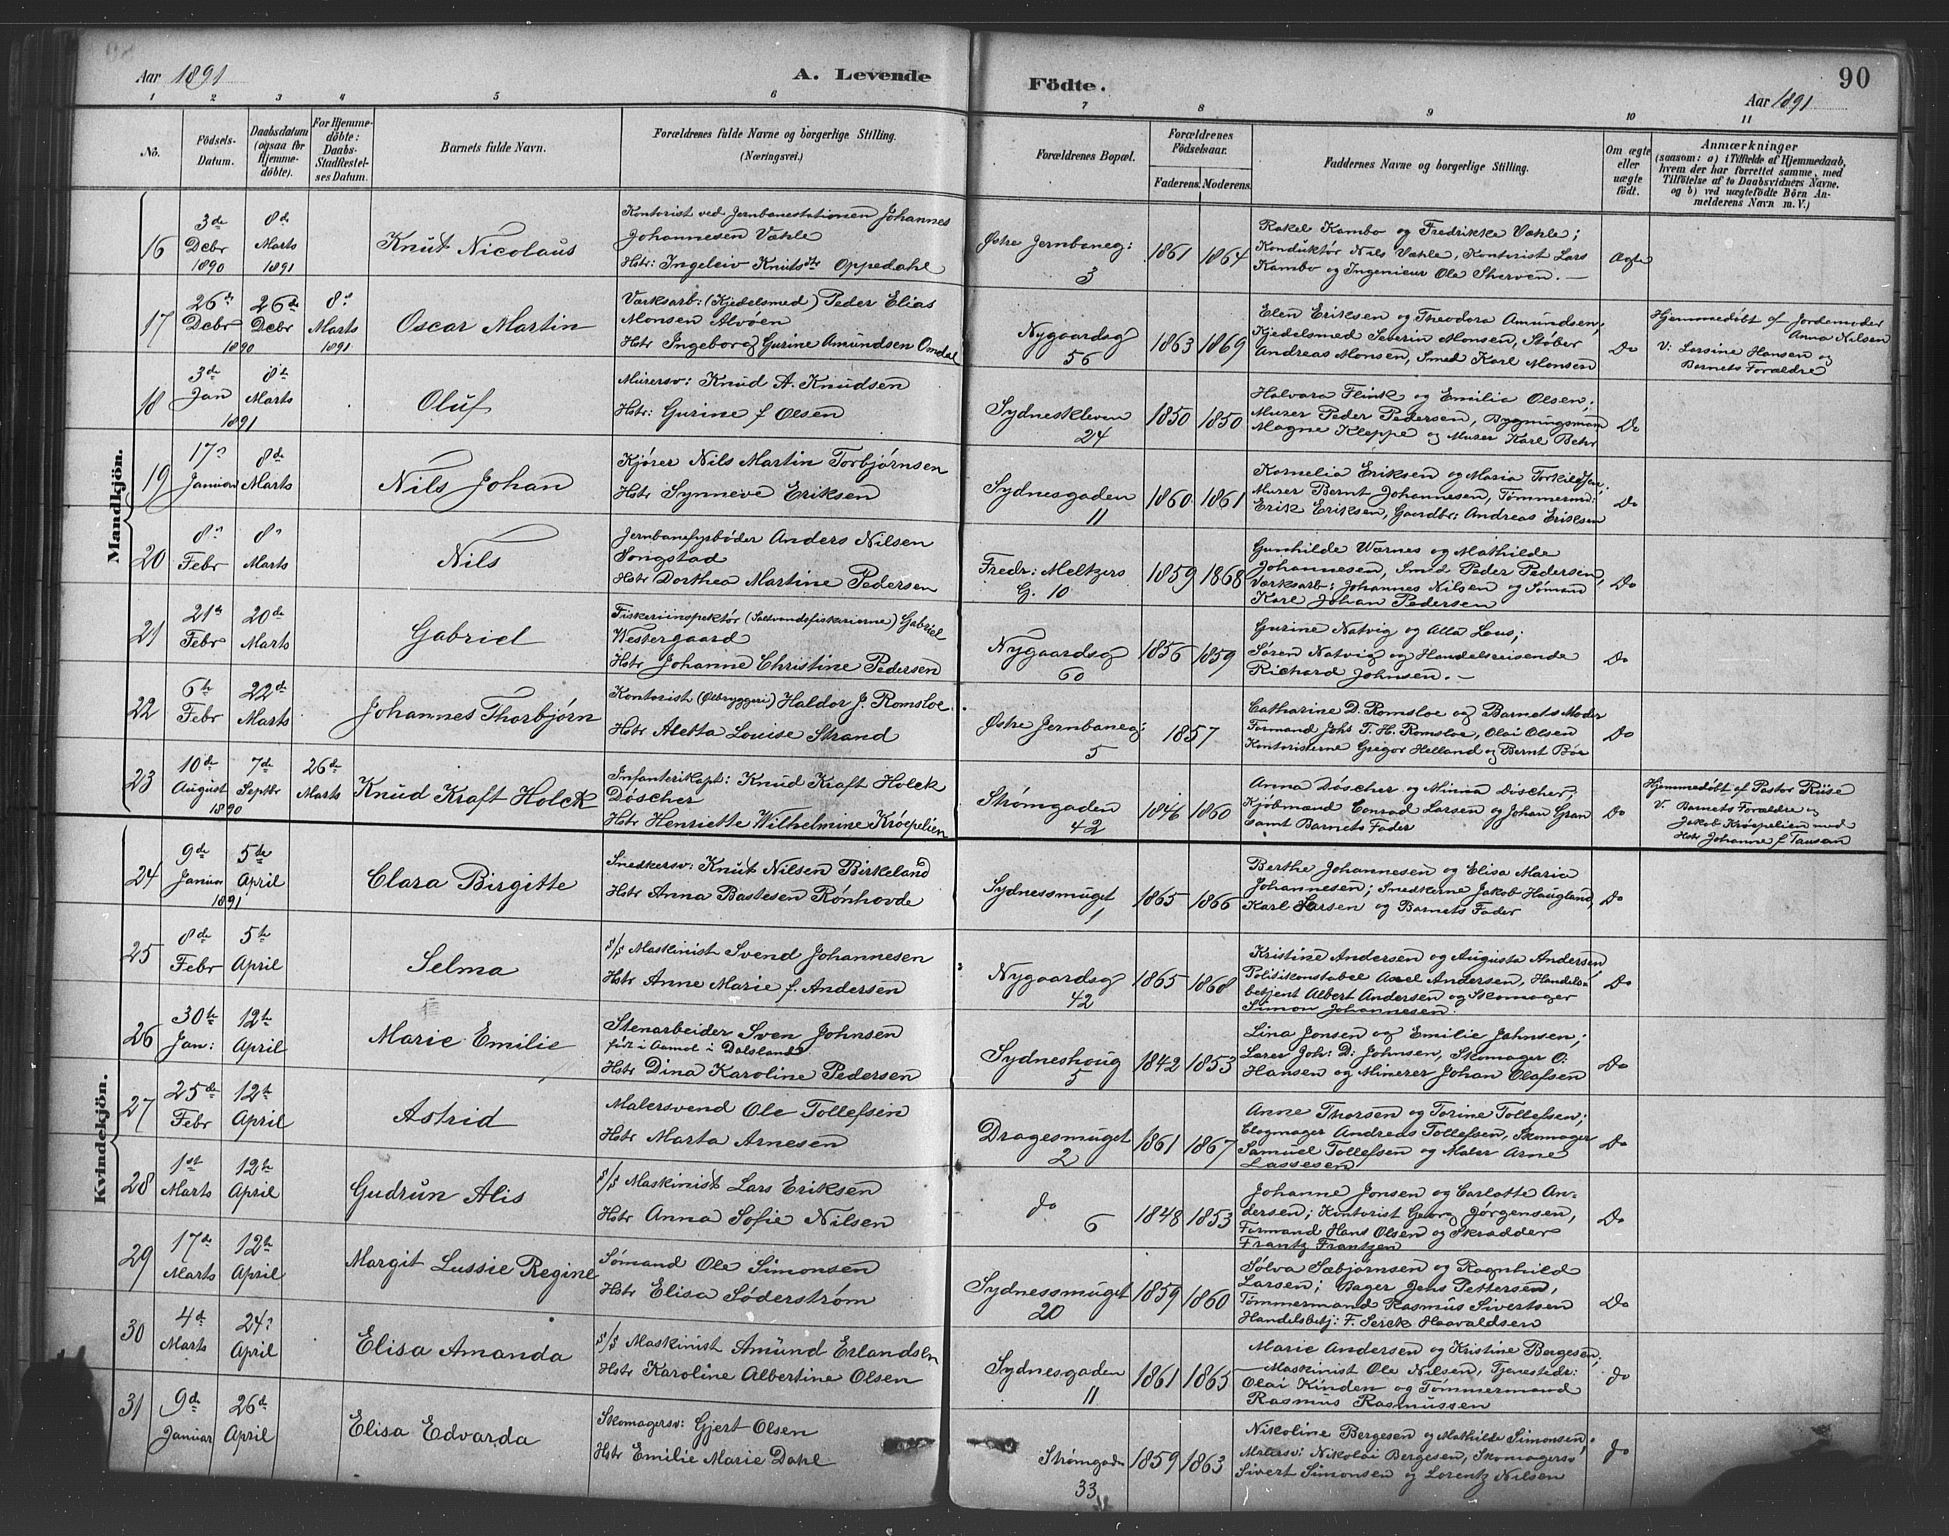 Aar 1891
A. Levende
Födte.
90
Aar 1891
1 2 3 4 5 6 7 8 9 10 11
No.
Födsels-
Datum.
Daabsdatum
(ogsaa for
Hjemme-
döbte).
For Hjemme-
döbte:
Daabs-
Stadfæstel-
ses Datum.
Barnets fulde Navn.
Forældrenes fulde Navne og borgerlige Stilling.
(Næringsvei.)
Forældrenes Bopæl.
Forældrenes
Födselsaar.
Faderens. Moderens.
Faddernes Navne og borgerlige Stilling.
Om ægte
eller
uægte
födt.
Anmærkninger
(saasom: a) i Tilfælde af Hjemmedaab,
hvem der har forrettet samme, med
Tilföielse af to Daabsvidners Navne.
og b) ved uægtefödte Börn An-
melderens Navn m. V.)
Mandkjön.
16
3de Debr 1890
8de Marts 1891
Knut Nicolaus
Kontorist ved Jernbanestationen Johannes
Johannesen Væhle
Hstr: Ingeleiv Knutsdtr Oppedahl
Østre Jernbaneg:
3
1861 1864
Rakel Kambo og Fredrikke Væhle;
Konduktør Nils Væhle, Kontorist Lars
Kambo og Ingenieur Ole Skerven.—
Ægte
17
26de Debr 1890
26de Debr
8de Marts 1891
Oscar Martin
Værksarb: (Kjedelsmed) Peder Elias
Monsen Alvøen
Hstr Ingeborg Gurine Amundsen Omdal
Nygaardsg
56
1863 1869
Elen Eriksen og Theodora Amundsen;
Kjedelsmed Severin Monsen, Støber
Andreas Monsen, Smed Karl Monsen
Do
Hjemmedøbt af Jordemoder
Anna Nilsen
V: Larsine Hansen og
Barnets Forældre
18
3de Jan 1891
8de Marts
Oluf
Murersv: Knud A. Knudsen
Hstr: Gurine f Olsen
Sydneskleven
24
1850 1850
Halvara Flink og Emilie Olsen;
Murer Peder Pedersen, Bygningsmand
Magne Kleppe og Murer Karl Behr
Do
19
17de Januar
8de Marts
Nils Johan
Kjører Nils Martin Torbjørnsen
Hstr Synneve Eriksen
Sydnesgaden
11
1860 1861
Kornelia Eriksen og Maria Torkildsen;
Murer Bernt Johannesen, Tømmermd:
Erik Eriksen, Gaardbr: Andreas Eriksen
Do
20
8de Febr
8de Marts
Nils
Jernbanefyrbøder Anders Nilsen
Songstad
Hstr Dorthea Martine Pedersen
Fredr: Meltzers
G. 10
1859 1868
Gunhilde Wærnes og Mathilde
Johannesen, Smed Peder Pedersen,
Værksarb: Johannes Nilsen og Sømand
Karl Johan Pedersen
Do
21
21de Febr
20de Marts
Gabriel
Fiskeriinspektør (Saltvandsfiskerierne) Gabriel
Westergaard
Hstr Johanne Christine Pedersen
Nygaardsg
60
1856 1859
Gurine Natvig og Alla Lous;
Søren Natvig og Handelsreisende
Richard Johnsen.—
Do
22
6te Febr
22de Marts
Johannes Thorbjørn
Kontorist (Ølbryggeri) Haldor J. Romsloe
Hstr Aletta Louise Strand
Østre Jernbaneg:
5
1857
Catharine D. Romsloe og Barnets Moder
Formand Johs T. H. Romsloe, Olai Olsen
Kontoristerne Gregor Helland og Bernt Bør
Do
23
10de August 1890
7de Septbr
26de Marts
Knud Kraft Holck
Infanterikapt: Knud Kraft Holck
Døscher
Hstr Henriette Wilhelmine Krøepelien
Strømgaden
42
1846 1860
Anna Døscher og Minna Døscher;
Kjøbmænd Conrad Larsen og Johan Gran
samt Barnets Fader
Do
Hjemmedøbt af Pastor Riise
V. Barnets Forældre og
Jakob Krøepelien med
Hstr Johanne f Tausan
Kvindekjön.
24
9de Januar 1891
5te April
Clara Birgitte
Snedkersv: Knut Nilsen Birkeland
Hstr Anna Bastesen Rønhovde
Sydnessmuget
1
1865 1866
Berthe Johannesen og Elisa Maria
Johannesen; Snedkerne Jakob Haugland,
Karl Larsen og Barnets Fader
Do
25
8de Febr
5te April
Selma
s/s Maskinist Svend Johannesen
Hstr Anne Marie f. Andersen
Nygaardsg
42
1865 1868
Kristine Andersen og Augusta Andersen,
Politikonstabel Axel Andersen, Handels-
betjent Albert Andersen og Skomager
Simon Johannesen.
Do
26
30te Jan:
12te April
Marie Emilie
Stenarbeider Sven Johnsen
født i Aamol i Dalsland
Hstr Dina Karoline Pedersen
Sydneshoug
5
1842 1853
Lina Jonsen og Emilie Jahnsen;
Lærer Joh: D: Johnsen, Skomager O:
Hansen og Minerer Johan Olafsen
Do
27
25de Febr
12te April
Astrid
Malersvend Ole Tollefsen
Hstr Marta Arnesen
Dragesmuget
2
1861 1867
Anne Thorsen og Torine Tollefsen;
Clogmager Andreas Tollefsen, Skomager
Samuel Tollefsen og Maler Arne
Lassesen
Do
28
1ste Marts
12te April
Gudrun Alis
s/s Maskinist Lars Eriksen
Hstr Anna Sofie Nilsen
do
6
1848 1853
Johanne Jonsen og Carlotte An-
dersen; Kontorist Georg Jørgensen,
Formand Hans Olsen og Skrædder
Frantz Frantzen
Do
29
17de Marts
12te April
Margit Lussie Regine
Sømand Ole Simonsen
Hstr Elisa Søderstrøm
Sydnessmuget
20
1859 1860
Sølva Sæbjørnsen og Ragnhild
Larsen; Bager Jens Pettersen,
Tømmermand Rasmus Sivertsen
Handelsbetj: F. Serck Haavaldsen
Do
30
4de Marts
24de April
Elisa Amanda
s/s Maskinist Amund Erlandsen
Hstr Karoline Albertine Olsen
Sydnesgaden
11
1861 1865
Marie Andersen og Kristine Børgesen;
Maskinist Ole Nilsen, Tjenestedr:
Olai Kinden og Tømmermand
Rasmus Rasmussen
do
31
9de Januar
26de April
Elisa Edvarda
Skomagersv: Gjert Olsen
Hstr Emilie Marie Dahl
Strømgade
33
1859 1863
Nikoline Bergesen og Mathilde Simonsen;
Malersv: Nikolai Bergesen, Skomagersv
Sivert Simonsen og Lorentz Nilsen
do